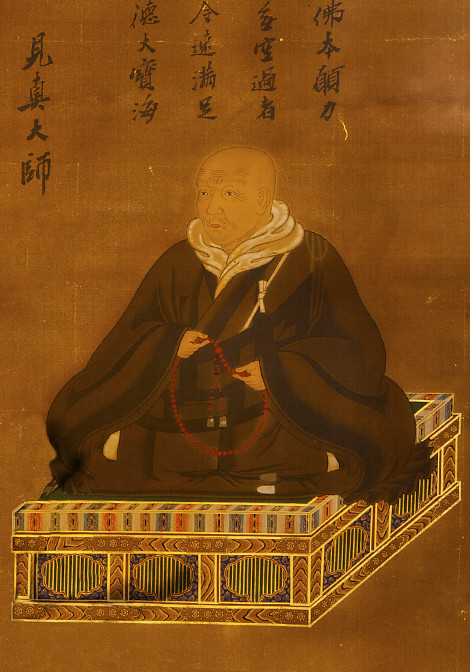 佛本願力
無空過者
令速滿足
德大寶海
見真大師